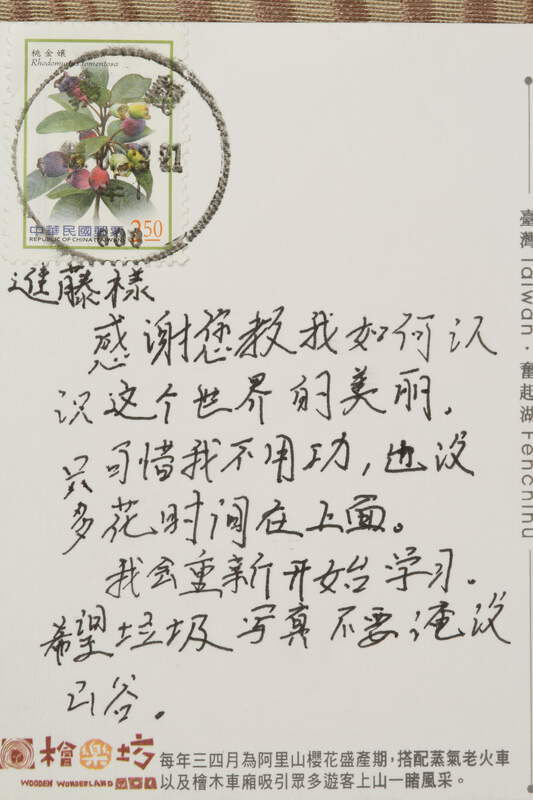 桃金孃
Rhodomyrtus tomentosa
中華民國郵票
2.50
REPUBLIC OF CHINA (TAIWAN)
臺灣 Taiwan · 奮起湖 Fenchihu
進藤樣
感谢您教我如何认
识这个世界的美丽.
只可惜我不用功, 也没
多花时间在上面。
我会重新开始学习。
希望垃圾写真不要淹没
山谷。
檜樂坊
WOODEN WONDERLAND
每年三四月為阿里山櫻花盛產期,搭配蒸氣老火車
以及檜木車廂吸引眾多遊客上山一睹風采。